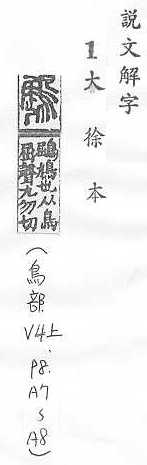 説文解字
1大徐本
鶌
鶌鳩也从鳥
屈聲九勿切
(鳥部V4上.P8.A7~A8)